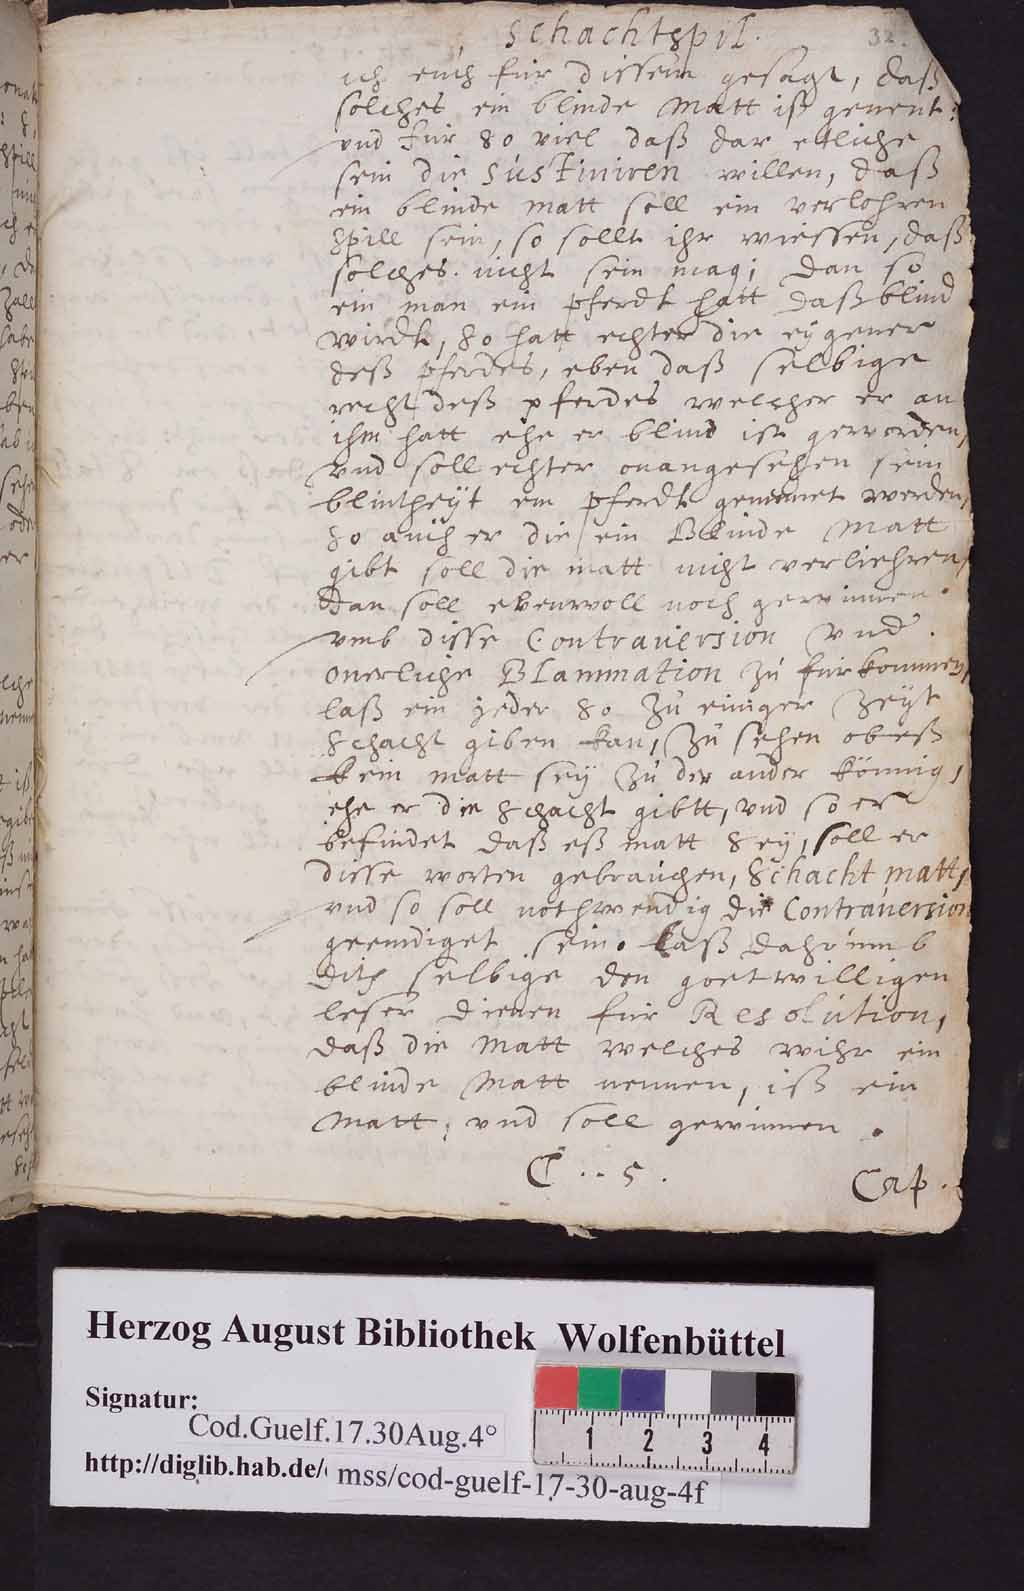 Schachtspil.
32.
ich euch für dissem gesagt, daß
solches ein blinde Matt ist genent:
vnd für so viel daß dar etliche
sein die sustiniren willen, daß
ein blinde matt soll ein verlohren
spill sein, so sollt ihr wiessen, daß
solches nicht sein mag; dan so
ein man ein pferdt hatt daß blind
wirdt, so hatt echter die eygener
deß pferdes, eben daß selbige
recht deß pferdes welcher er an
ihm hatt ehe er blind ist geworden,
vnd soll echter onangesehen sein
blintheyt ein pferdt genennet werden,
so auch er die ein Blinde Matt
gibt soll die matt nicht verliehren,
dan soll ebenwoll noch gewinnen.
vmb disse Contrauersion vnd
onerliche Blammation zu fürkommen,
laß ein jeder so zu einiger zeyt
schacht giben kan, zu sehen ob eß
kein matt sey zu der ander könnig,
ehe er die schacht gibtt, vnd so er
befindet daß eß matt sey, soll er
diesse worten gebrauchen, Schacht matt,
vnd so soll nothwendig die Contrauersion
geendiget sein. Laß dahrumb
dith selbige den goetwilligen
leser dienen für Resolution,
daß die Matt welches wihr ein
blinde Matt nennen, iß ein
Matt, vnd soll gewinnen.
C..5.
Cap.
Herzog August Bibliothek Wolfenbüttel
Signatur:
Cod.Guelf.17.30Aug.4°
http://diglib.hab.de/
mss/cod-guelf-17-30-aug-4f
1 2 3 4